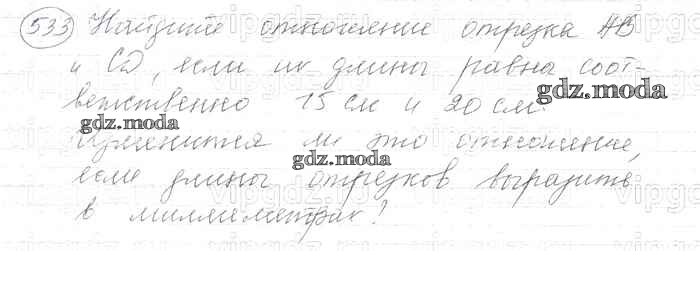 533 Найдите отношение отрезка АВ
и СD, если их длины равна соот-
ветственно 15 см и 20 см.
gdz.moda
gdz.moda
Изменится ли это отношение,
gdz.moda
если длины отрезков выразить
в миллиметрах?